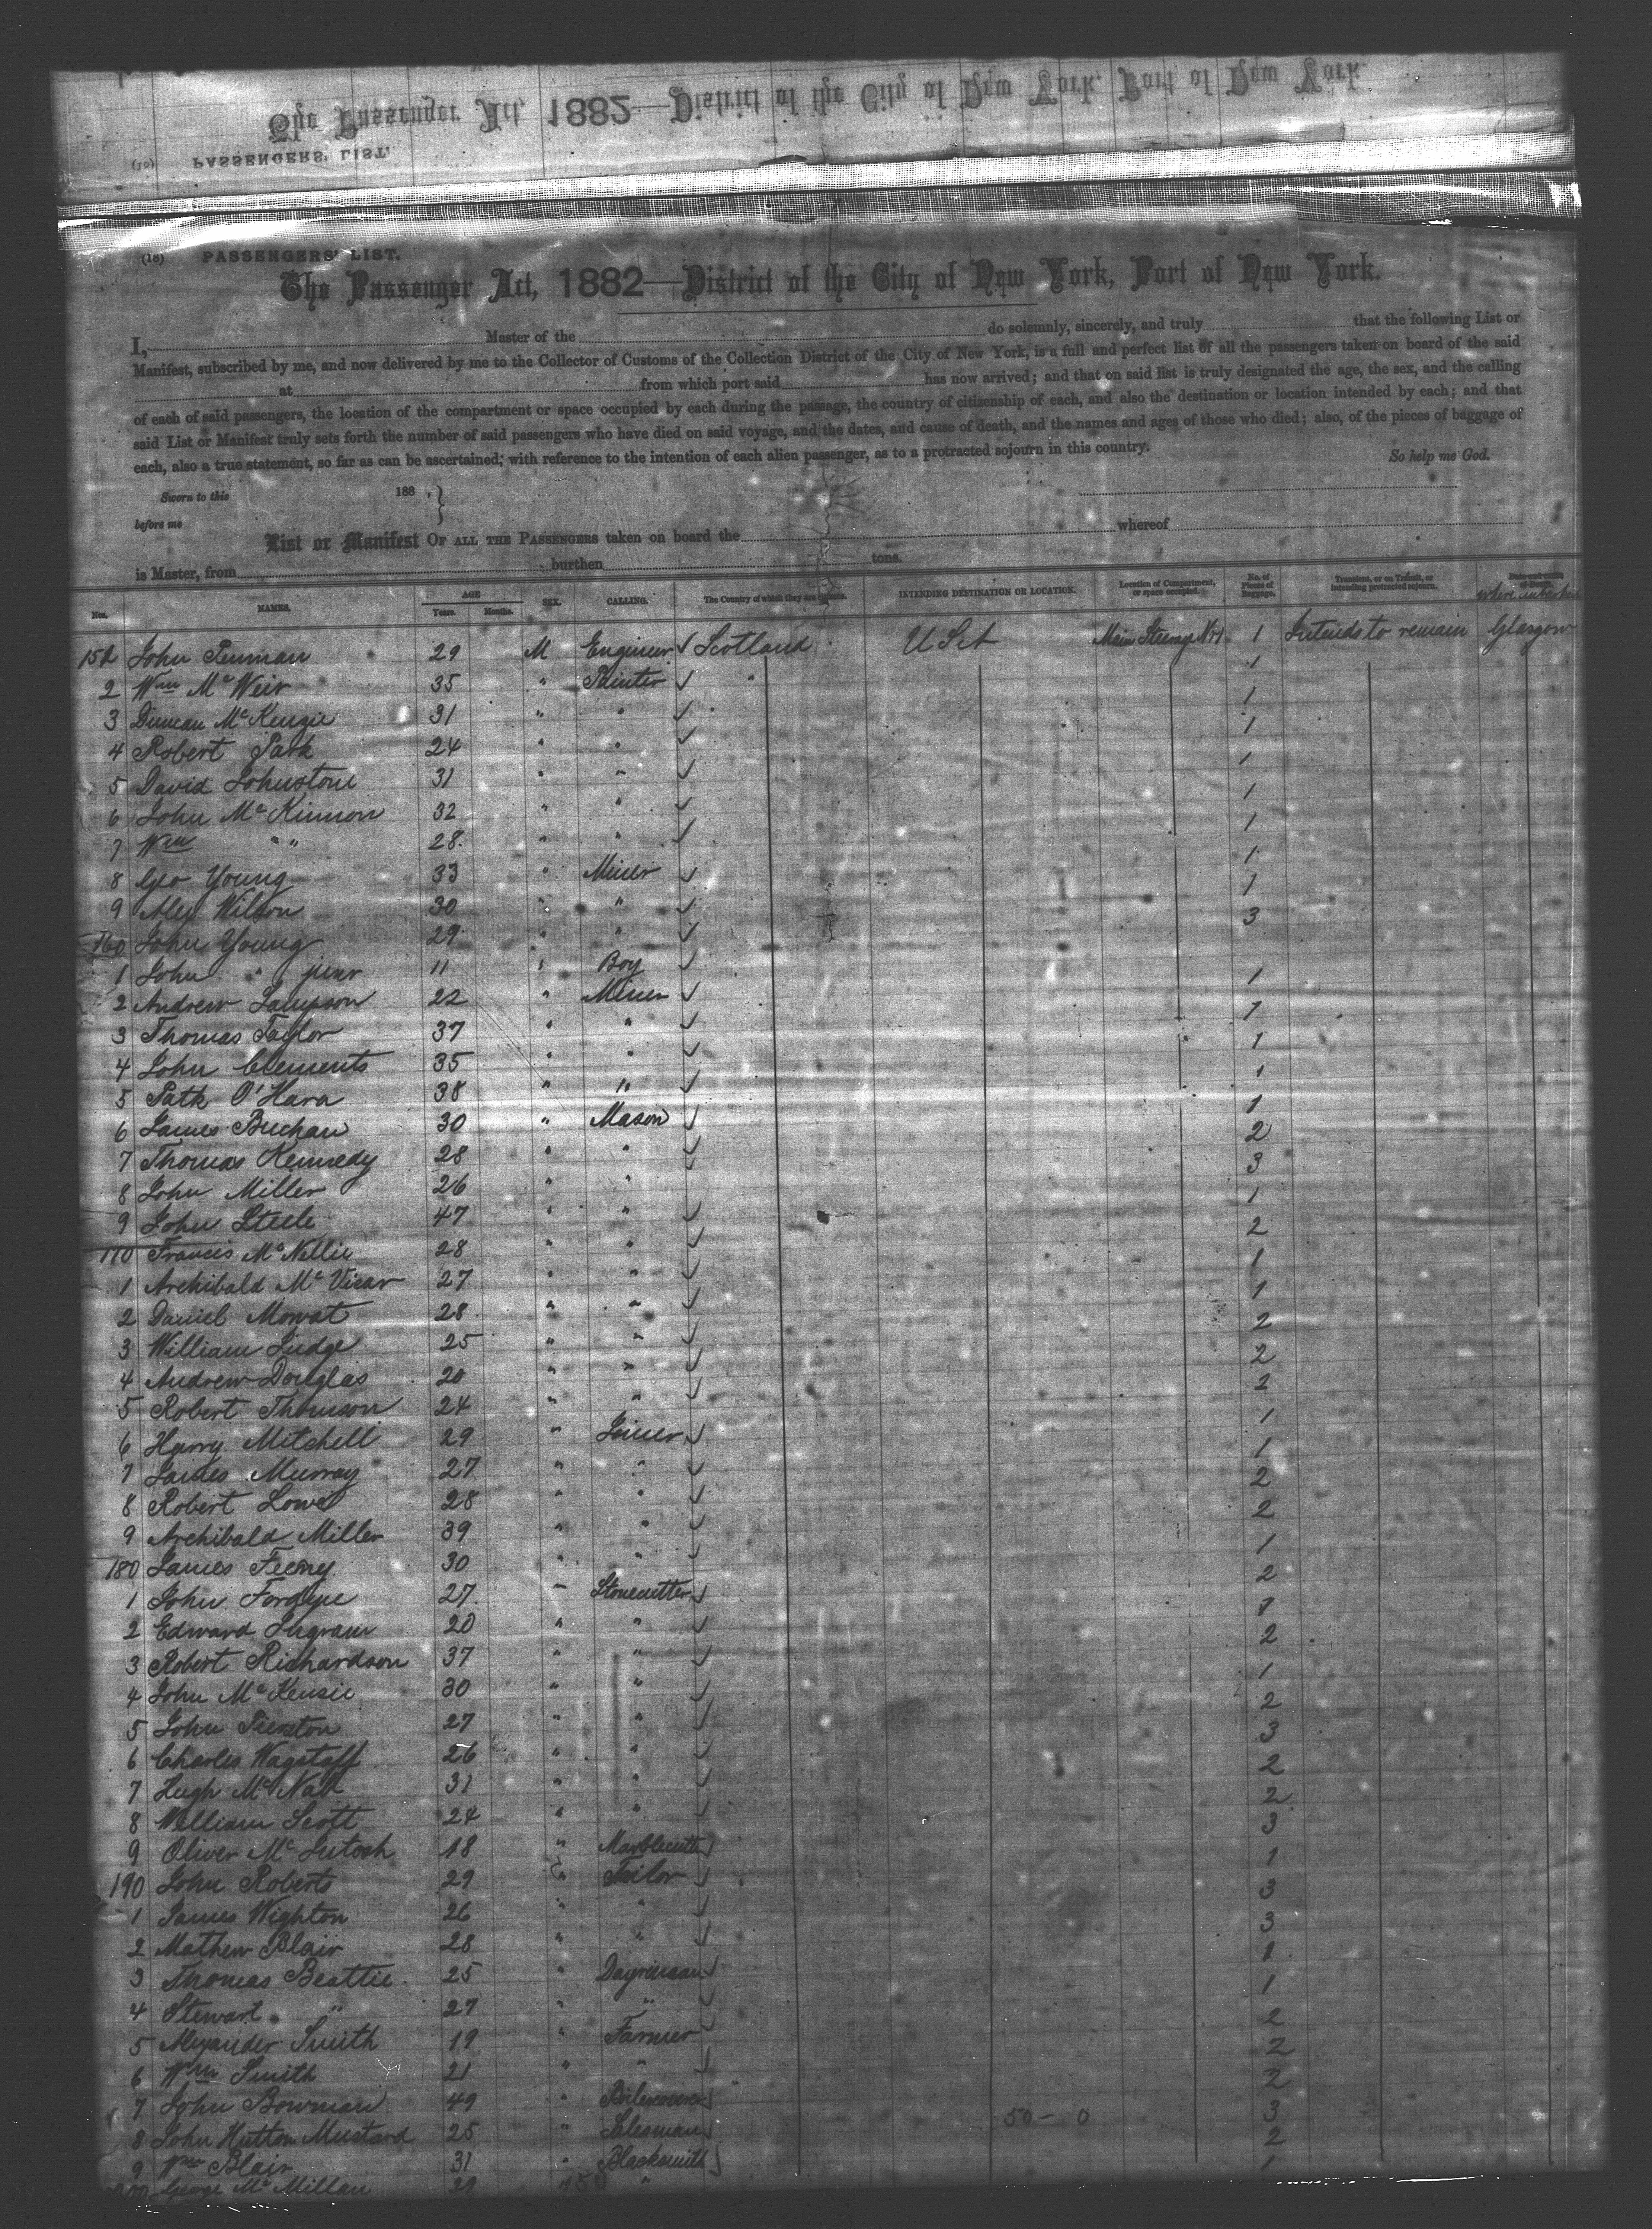 The Passenger Act, 1882—District of the City of New York, Port of New York.
(18) PASSENGERS' LIST.
(18) PASSENGERS' LIST.
The Passenger Act, 1882—District of the City of New York, Port of New York.
I, Master of the do solemnly, sincerely, and truly that the following List or
Manifest, subscribed by me, and now delivered by me to the Collector of Customs of the Collection District of the City of New York, is a full and perfect list of all the passengers taken on board of the said
at from which port said has now arrived; and that on said list is truly designated the age, the sex, and the calling
of each of said passengers, the location of the compartment or space occupied by each during the passage, the country of citizenship of each, and also the destination or location intended by each; and that
said List or Manifest truly sets forth the number of said passengers who have died on said voyage, and the dates, and cause of death, and the names and ages of those who died; also, of the pieces of baggage of
each, also a true statement, so far as can be ascertained, with reference to the intention of each alien passenger, as to a protracted sojourn in this country. So help me God.
Sworn to this 188 .
before me
List or Manifest OF ALL THE PASSENGERS taken on board the whereof
is Master, from burthen tons.
Nos. NAMES. AGE Years. Months. SEX. CALLING. The Country of which they are citizens. INTENDING DESTINATION OR LOCATION. Location of Compartment, or space occupied. No. of Pieces of Baggage. Transient, or in Transit, or intending protracted sojourn.
John Penman 29 M Engineer Scotland Main Steerage 1 Intends to remain Glasgow
2 Wm Mc Weir 35 " Painter 1
3 Duncan McKenzie 31 " " 1
4 Robert Park 24 " " 1
5 David Johnstone 31 " " 1
6 John McKinnon 32 " " 1
7 Wm " " 28 " " 1
8 Geo Young 33 " Miner 1
9 Alex Wilson 30 " " 1
160 John Young 29 " " 3
1 John " junr 11 " Boy
2 Andrew 22 " Miner 1
3 Thomas Taylor 37 " " 1
4 John Clements 35 " " 1
5 Patk O'Hara 38 " " 1
6 James Buchan 30 " Mason 1
7 Thomas Kennedy 28 " " 2
8 John Miller 26 " " 3
9 John Steele 47 " " 1
170 Francis McNellie 28 " " 2
1 Archibald McVicar 27 " " 1
2 Daniel Mowat 28 " " 1
3 William Judge 25 " " 2
4 Andrew Douglas 20 " " 2
5 Robert Thomson 24 " " 2
6 Harry Mitchell 29 " Joiner 1
7 James Murray 27 " " 1
8 Robert Lowe 28 " " 2
9 Archibald Miller 39 " " 2
180 James Feeney 30 " " 1
1 John Fordyce 27 " Stonecutter 2
2 Edward Ingram 20 " " 1
3 Robert Richardson 37 " " 2
4 John McKensie 30 " " 1
5 John 27 " " 2
6 Charles Wagstaff 26 " " 3
7 Hugh McNab 31 " " 2
8 William Scott 24 " " 2
9 Oliver McIntosh 18 " Marblecutter 3
190 John Roberts 29 " Tailor 1
1 James Wighton 26 " " 3
2 Mathew Blair 28 " " 3
3 Thomas Beattie 25 " 1
4 Stewart " 27 " " 1
5 Alexander Smith 19 " Farmer 2
6 Wm Smith 21 " " 2
7 John Bowman 49 " 2
8 John Hutton Mustard 25 " Salesman 50 - 0 3
9 Wm Blair 31 " Blacksmith 2
George McMillan 29 " 1